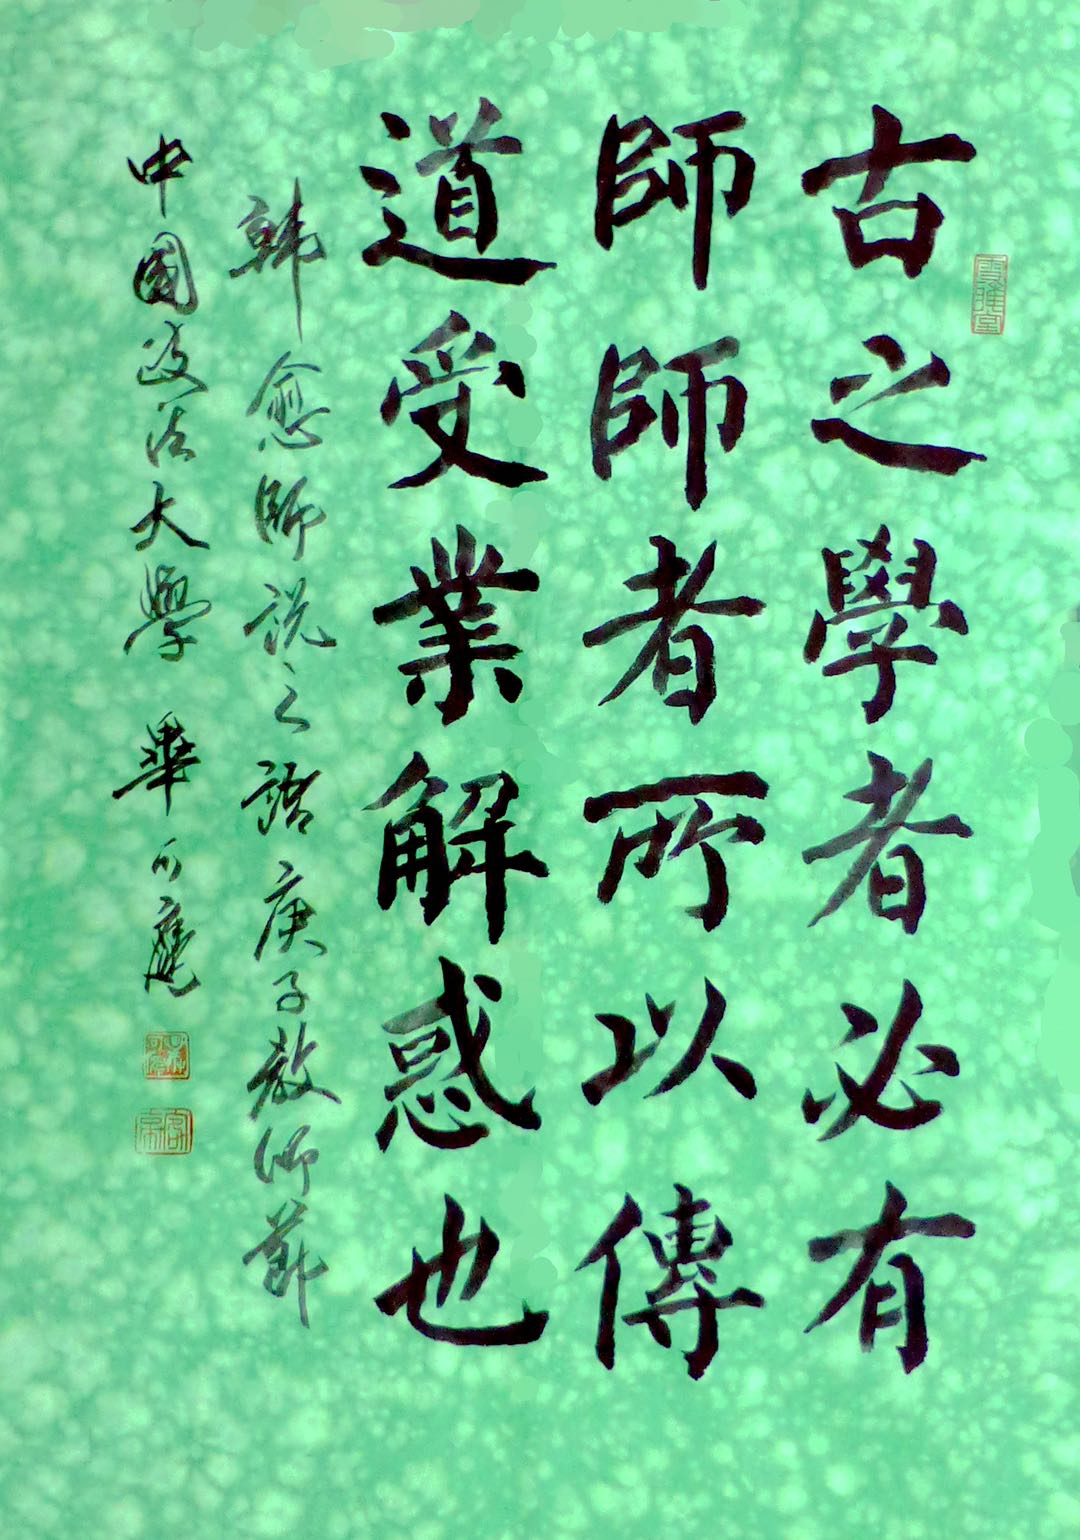 古之學者必有
師師者所以傳
道受業解惑也
韓愈師說之語庚子教師節
中國政法大學 畢